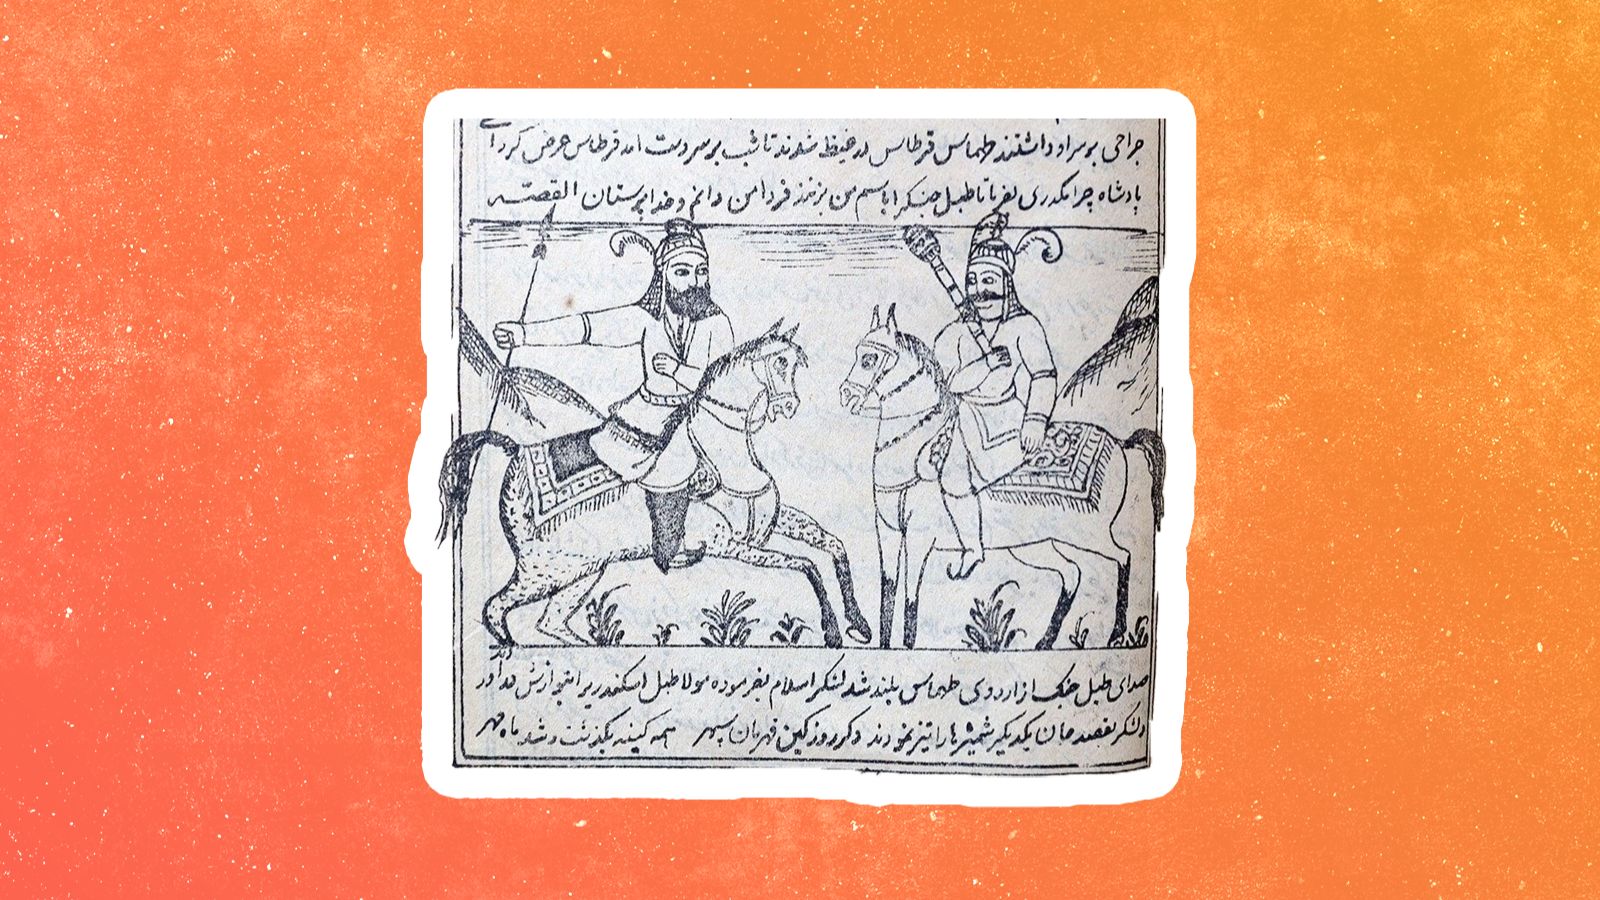 جراحی بر سر او داشتند طهماس قرطاس در غیظ شدند تا شب بر سر دست امد قرطاس عرض کرد ا
پادشاه چرا مکدری بفرما تا طبل جنک را باسم من بزنند فردا من دانم و خداپرستان القصه
صدای طبل جنک از اردوی طهماس بلند شد لشکر اسلام بفرموده مولا طبل اسکندر برا
دو لشکر بقصد جان یکدیکر شمشیرها را تیز نمودند دکر روز کین قهرمان سپهر همه کینه بکذشت و شد ماه مهر